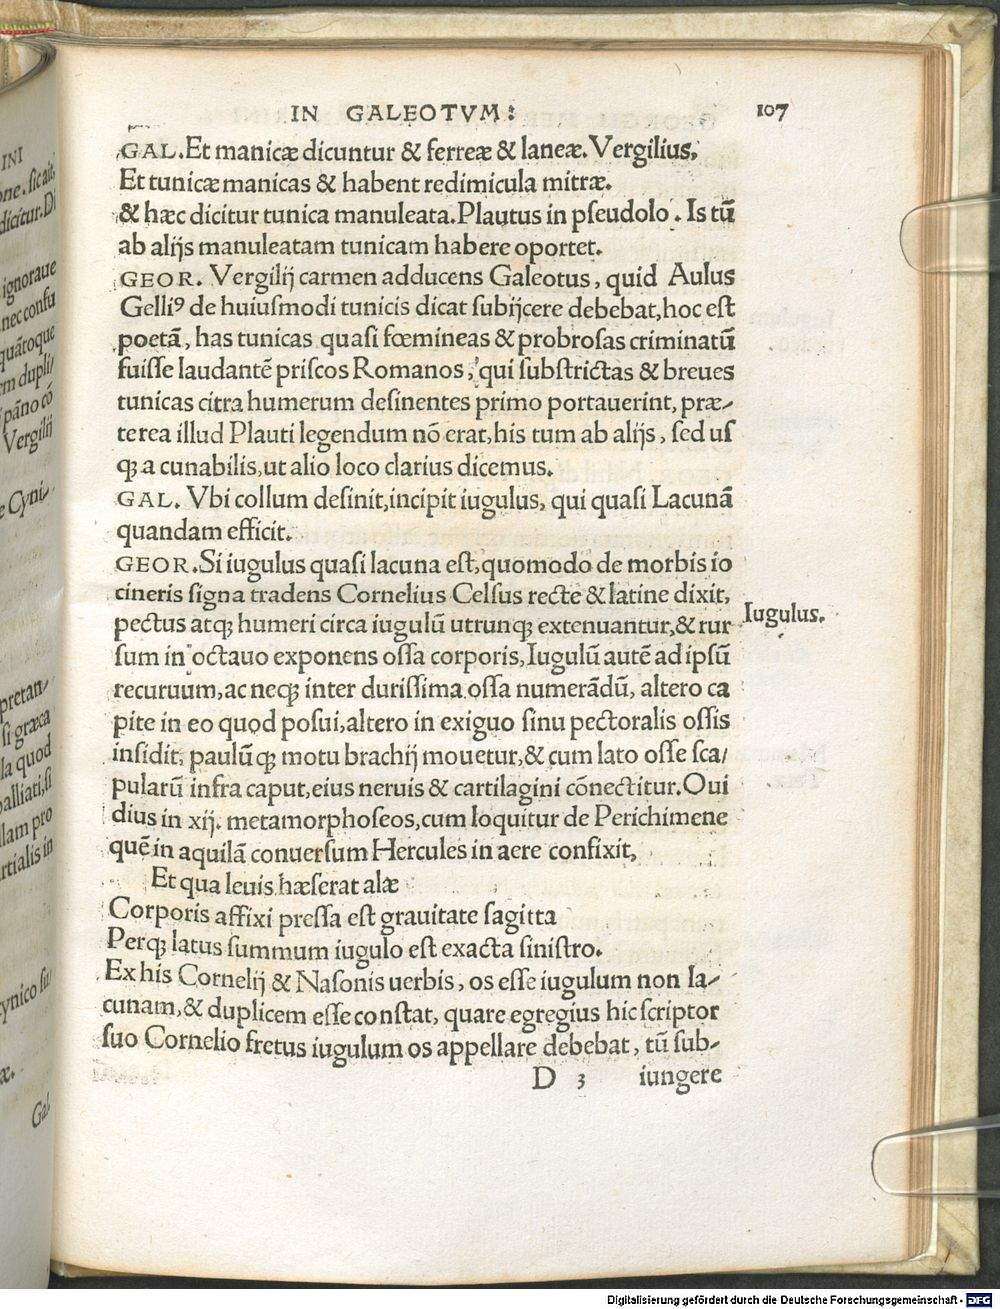 IN GALEOTVM:
107
GAL.Et manicæ dicuntur & ferreæ & laneæ. Vergilius,
Et tunicæ manicas & habent redimicula mitræ.
& hæc dicitur tunica manuleata. Plautus in pſeudolo. Is tū
ab alijs manuleatam tunicam habere oportet.
GEOR. Vergilij carmen adducens Galeotus, quid Aulus
Gelliꝰ de huiuſmodi tunicis dicat ſubijcere debebat, hoc eſt
poetā, has tunicas quaſi fœmineas & probroſas criminatū
fuiſſe laudantē priſcos Romanos, qui ſubſtrictas & breues
tunicas citra humerum deſinentes primo portauerint, præ-
terea illud Plauti legendum nō erat, his tum ab alijs, ſed uſ
qꝫ a cunabilis, ut alio loco clarius dicemus.
GAL. Vbi collum deſinit, incipit iugulus, qui quaſi Lacunā
quandam efficit.
GEOR. Si iugulus quaſi lacuna eſt, quomodo de morbis io
cineris ſigna tradens Cornelius Celſus recte & latine dixit,
pectus atqꝫ humeri circa iugulū utrunqꝫ extenuantur, & rur
ſum in octauo exponens oſſa corporis, Iugulū autē ad ipſū
recuruum, ac neqꝫ inter duriſſima oſſa numerādū, altero ca
pite in eo quod poſui, altero in exiguo ſinu pectoralis oſſis
inſidit, paulūqꝫ motu brachij mouetur, & cum lato oſſe ſca/
pularū infra caput, eius neruis & cartilagini cōnectitur. Oui
dius in xij. metamorphoſeos, cum loquitur de Perichimene
quē in aquilā conuerſum Hercules in aere confixit,
Et qua leuis hæſerat alæ
Corporis affixi preſſa eſt grauitate ſagitta
Perqꝫ latus ſummum iugulo eſt exacta ſiniſtro.
Ex his Cornelij & Naſonis uerbis, os eſſe iugulum non la-
cunam, & duplicem eſſe conſtat, quare egregius hic ſcriptor
ſuo Cornelio fretus iugulum os appellare debebat, tū ſub-
D 3 iungere
Iugulus.
INI
ne. ſic ait
dicitur. Di
ignoraue
nec confu
quātoque
m dupli/
pāno cō
Vergilij
e Cyni-
pretan-
ſi græca
la quod
palliati, ſi
llam pro
rtialis in
ynico ſu
æ.
Gal
Digitalisierung gefördert durch die Deutsche Forschungsgemeinschaft - DFG